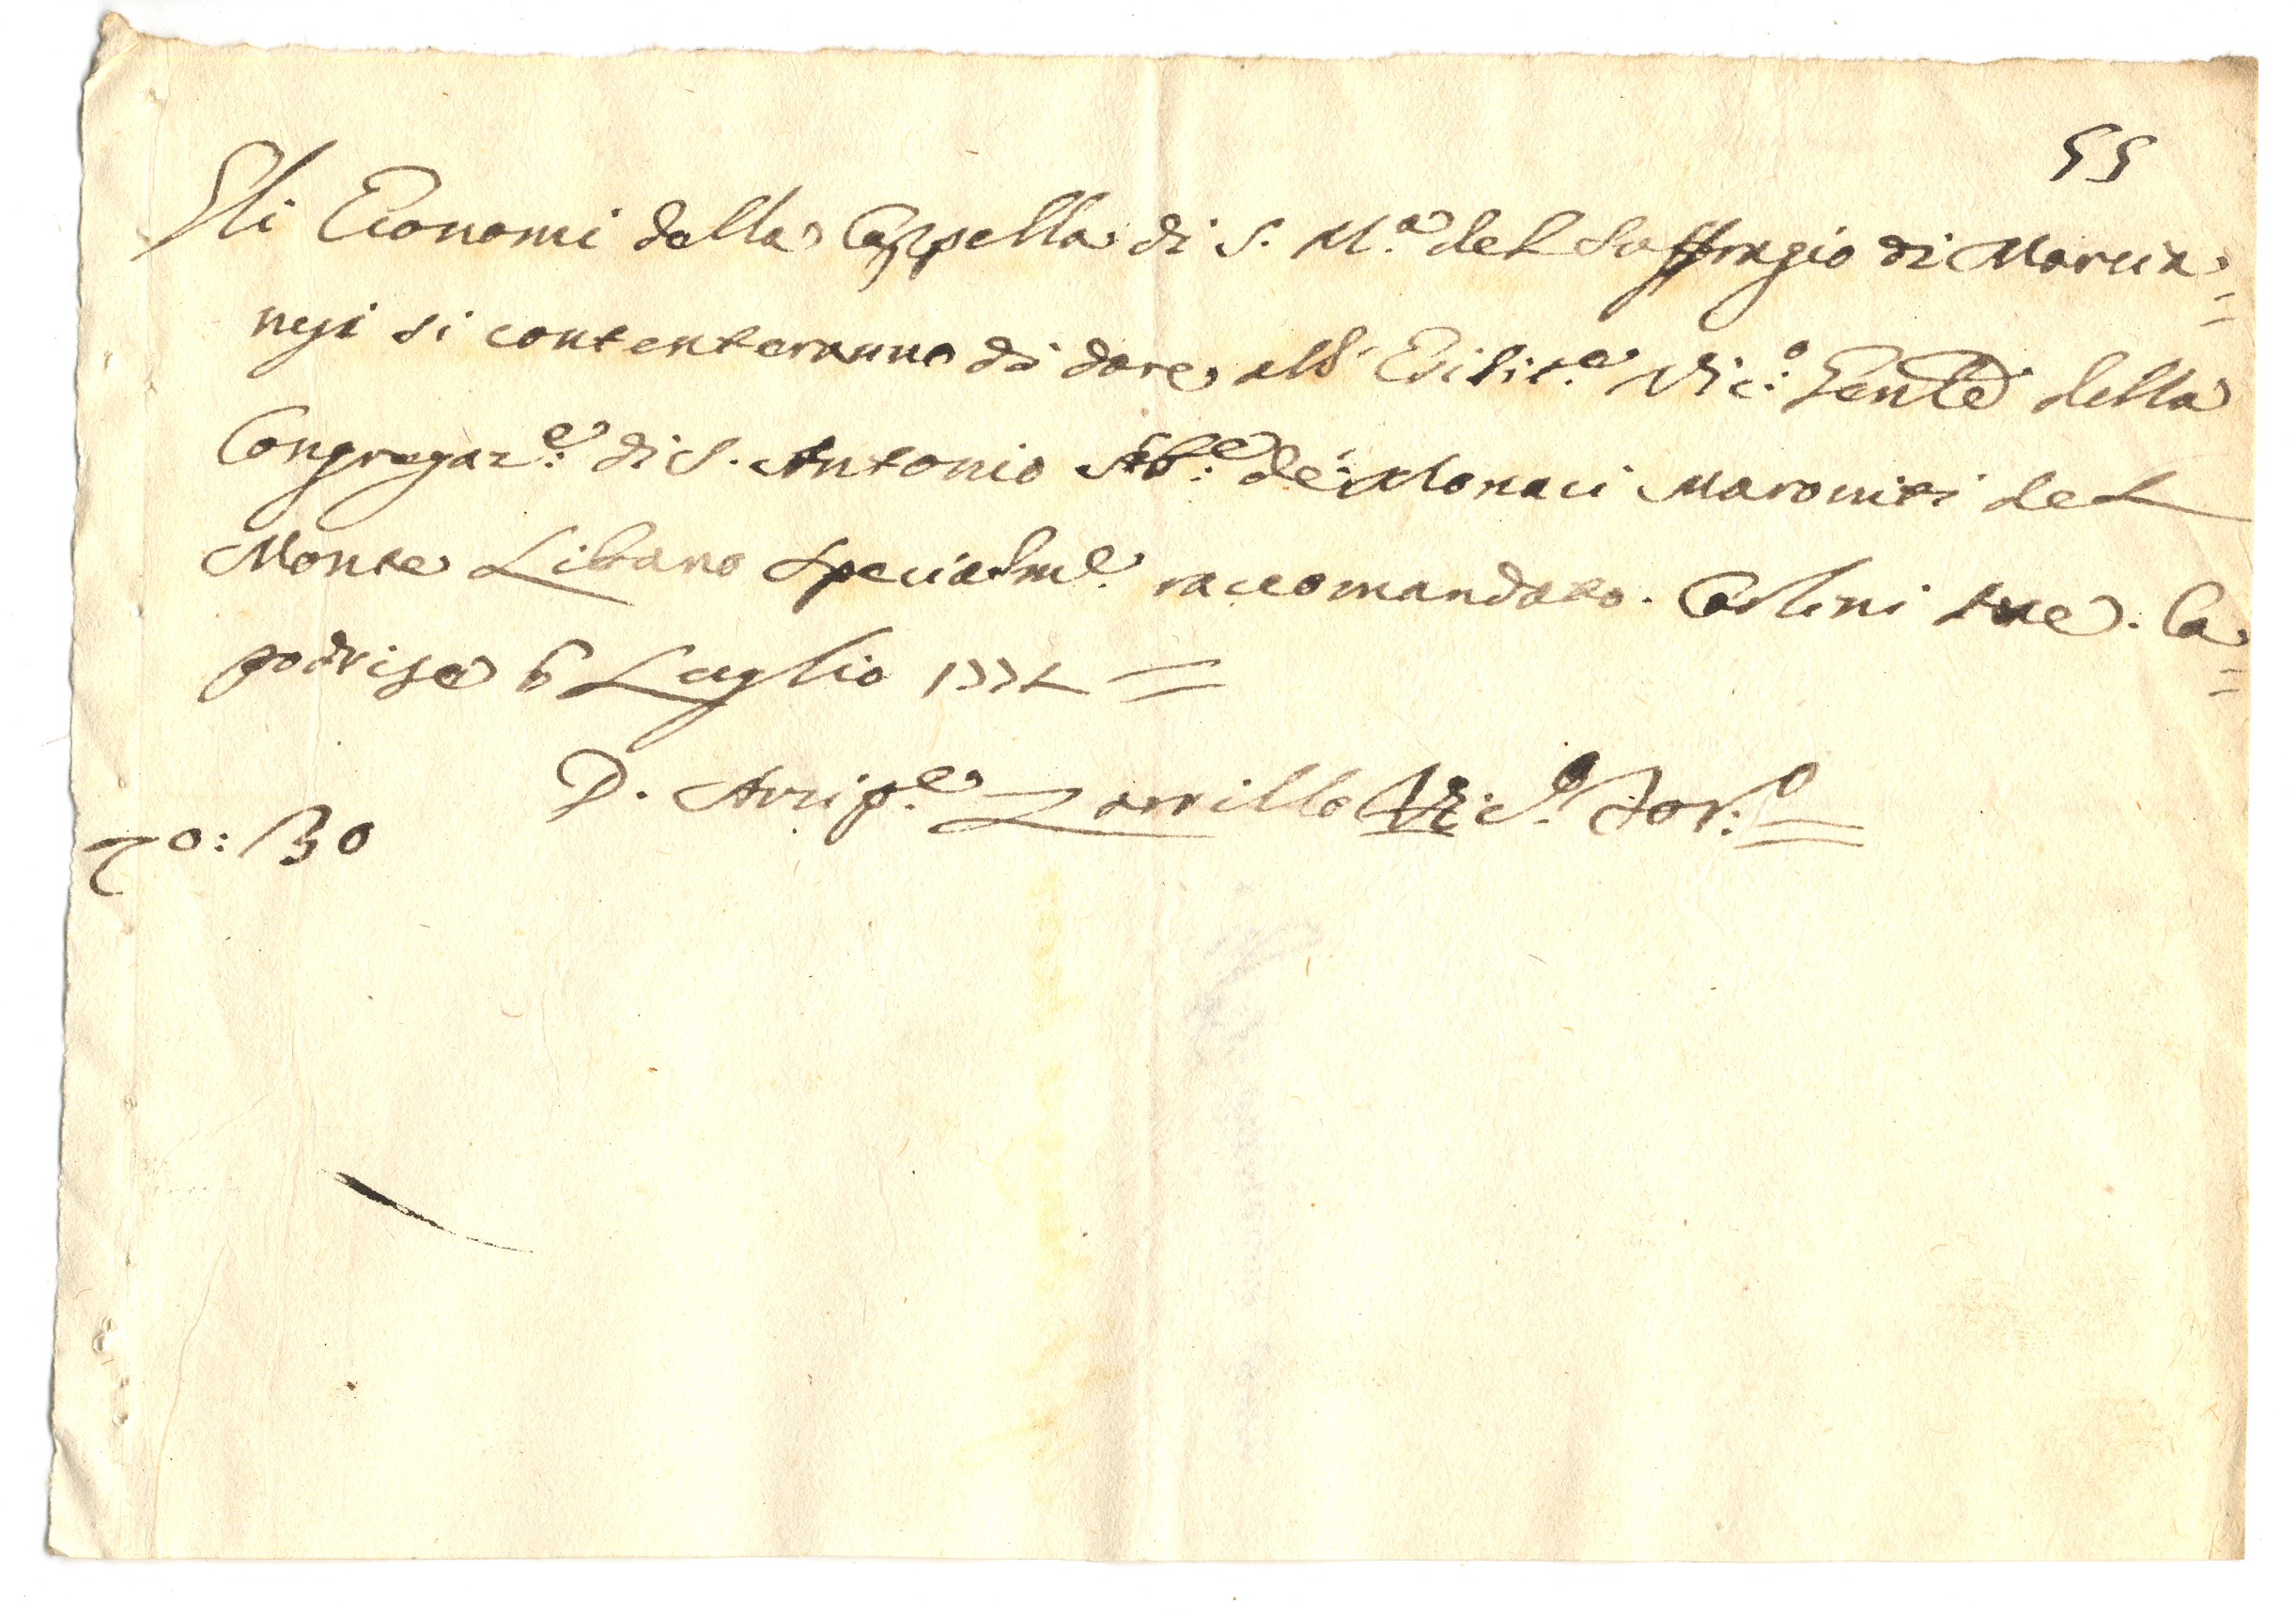 55
Gli Economi della Cappella di S. M.a del Suffragio di Marcia=
nesi si contenteranno di dare all' Vic.o Gen.le della
Congregaz.e di S. Antonio Ab.e de' Monaci Maroniti del
Monte Libano specialm.e raccomandato. Carlini tre. Ca=
podrise 6 Luglio 1772 =
D. Arcip.e Zarrillo Vic.o For.o =
30